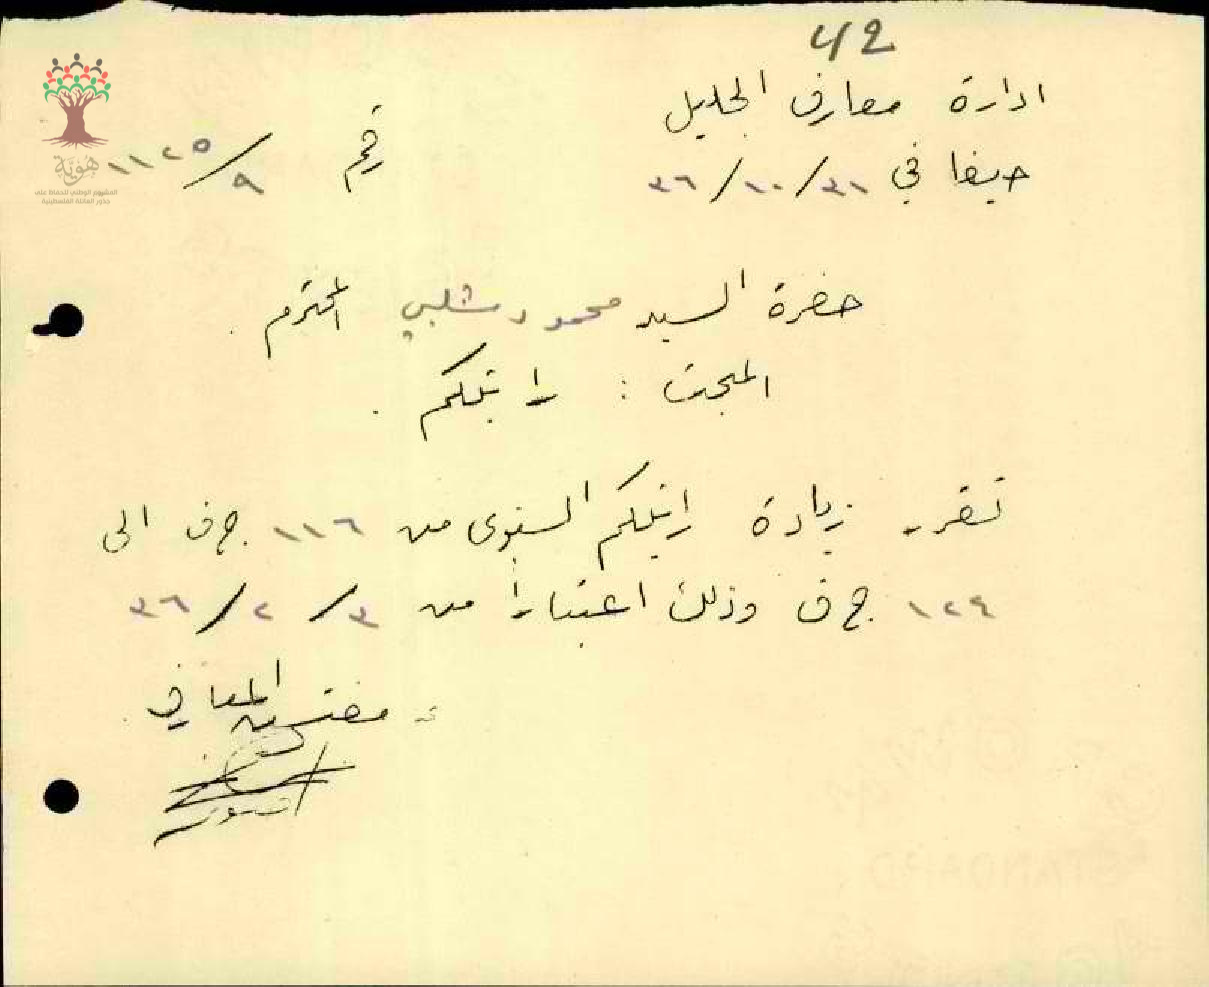 42
ادارة معارف الجليل
حيفا في ٣١/١٠/٣٦
رقم ١١٢٥/٩
حضرة السيد محمود شلبي المحترم .
المبحث : راتبكم .
تقرر زيادة راتبكم السنوى من ١١٦ ج ف الى
١٢٤ ج ف وذلك اعتبارا من ٣/٢/٣٦
مفتش المعارف
هُوِيَّة
المشروع الوطني للحفاظ على
جذور العائلة الفلسطينية